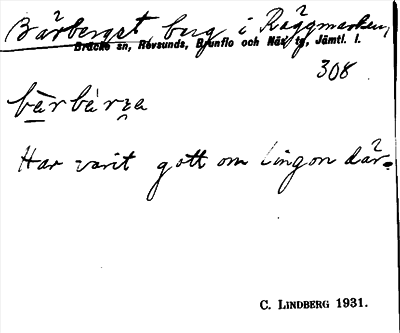 Bärberget, berg i Räggmarken,
Bräcke sn, Revsunds, Brunflo och Näs tg, Jämtl. l.
308
bärbärʒa
Har varit gott om lingon där.
C. LINDBERG 1931.